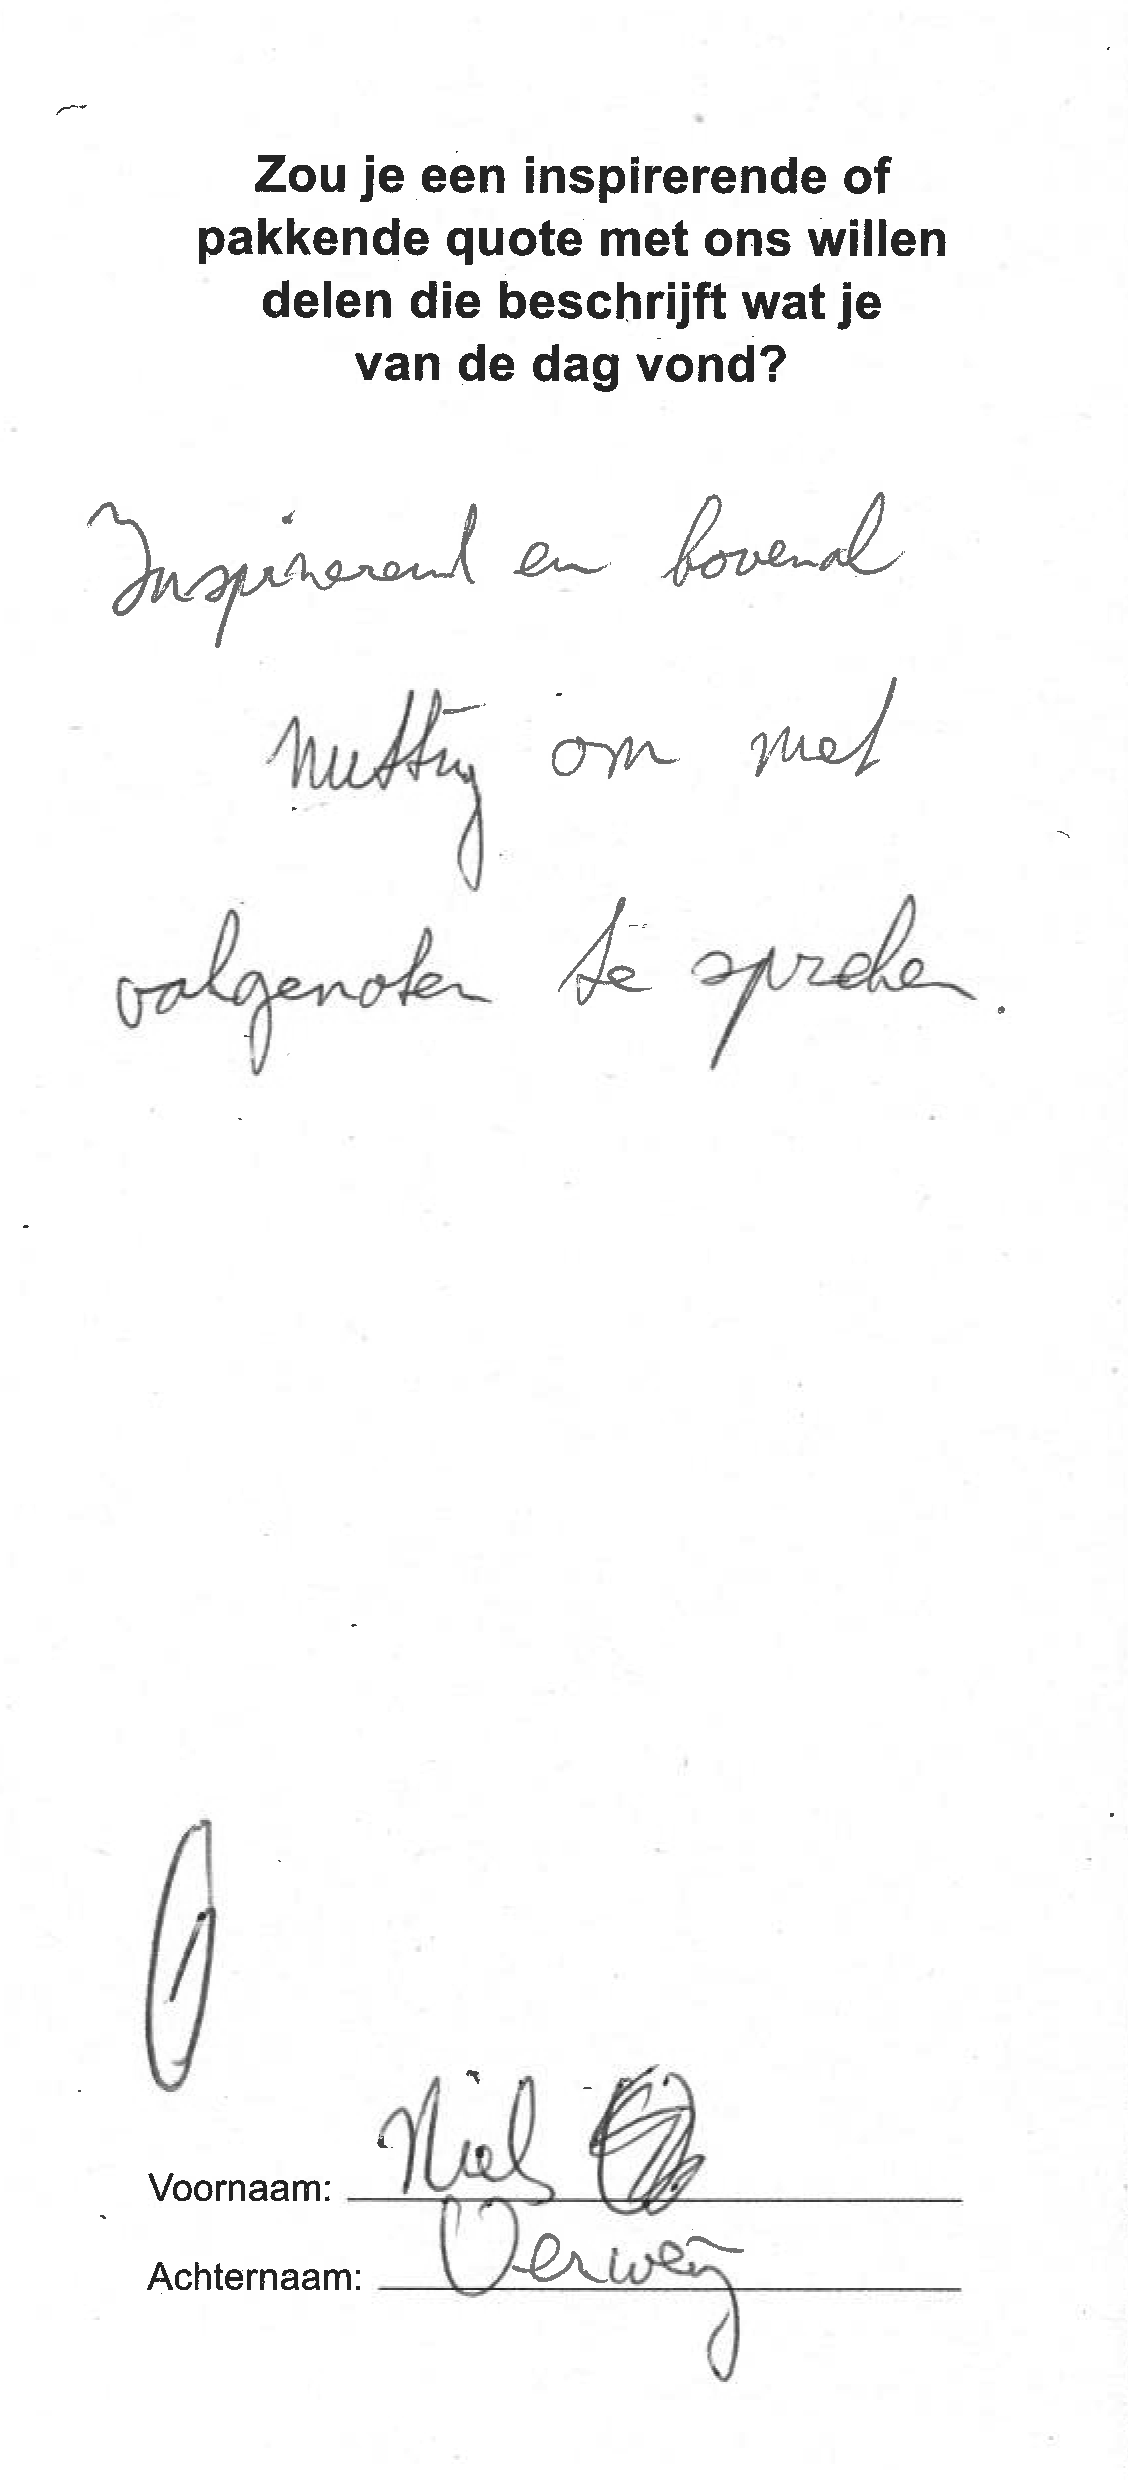 Zou je een inspirerende of
pakkende quote met ons willen
delen die beschrijft wat je
van de dag vond?
Inspirerend en bovenal
nuttig om met
vakgenoten te spreken.
Voornaam: Niels
Achternaam: Verweij